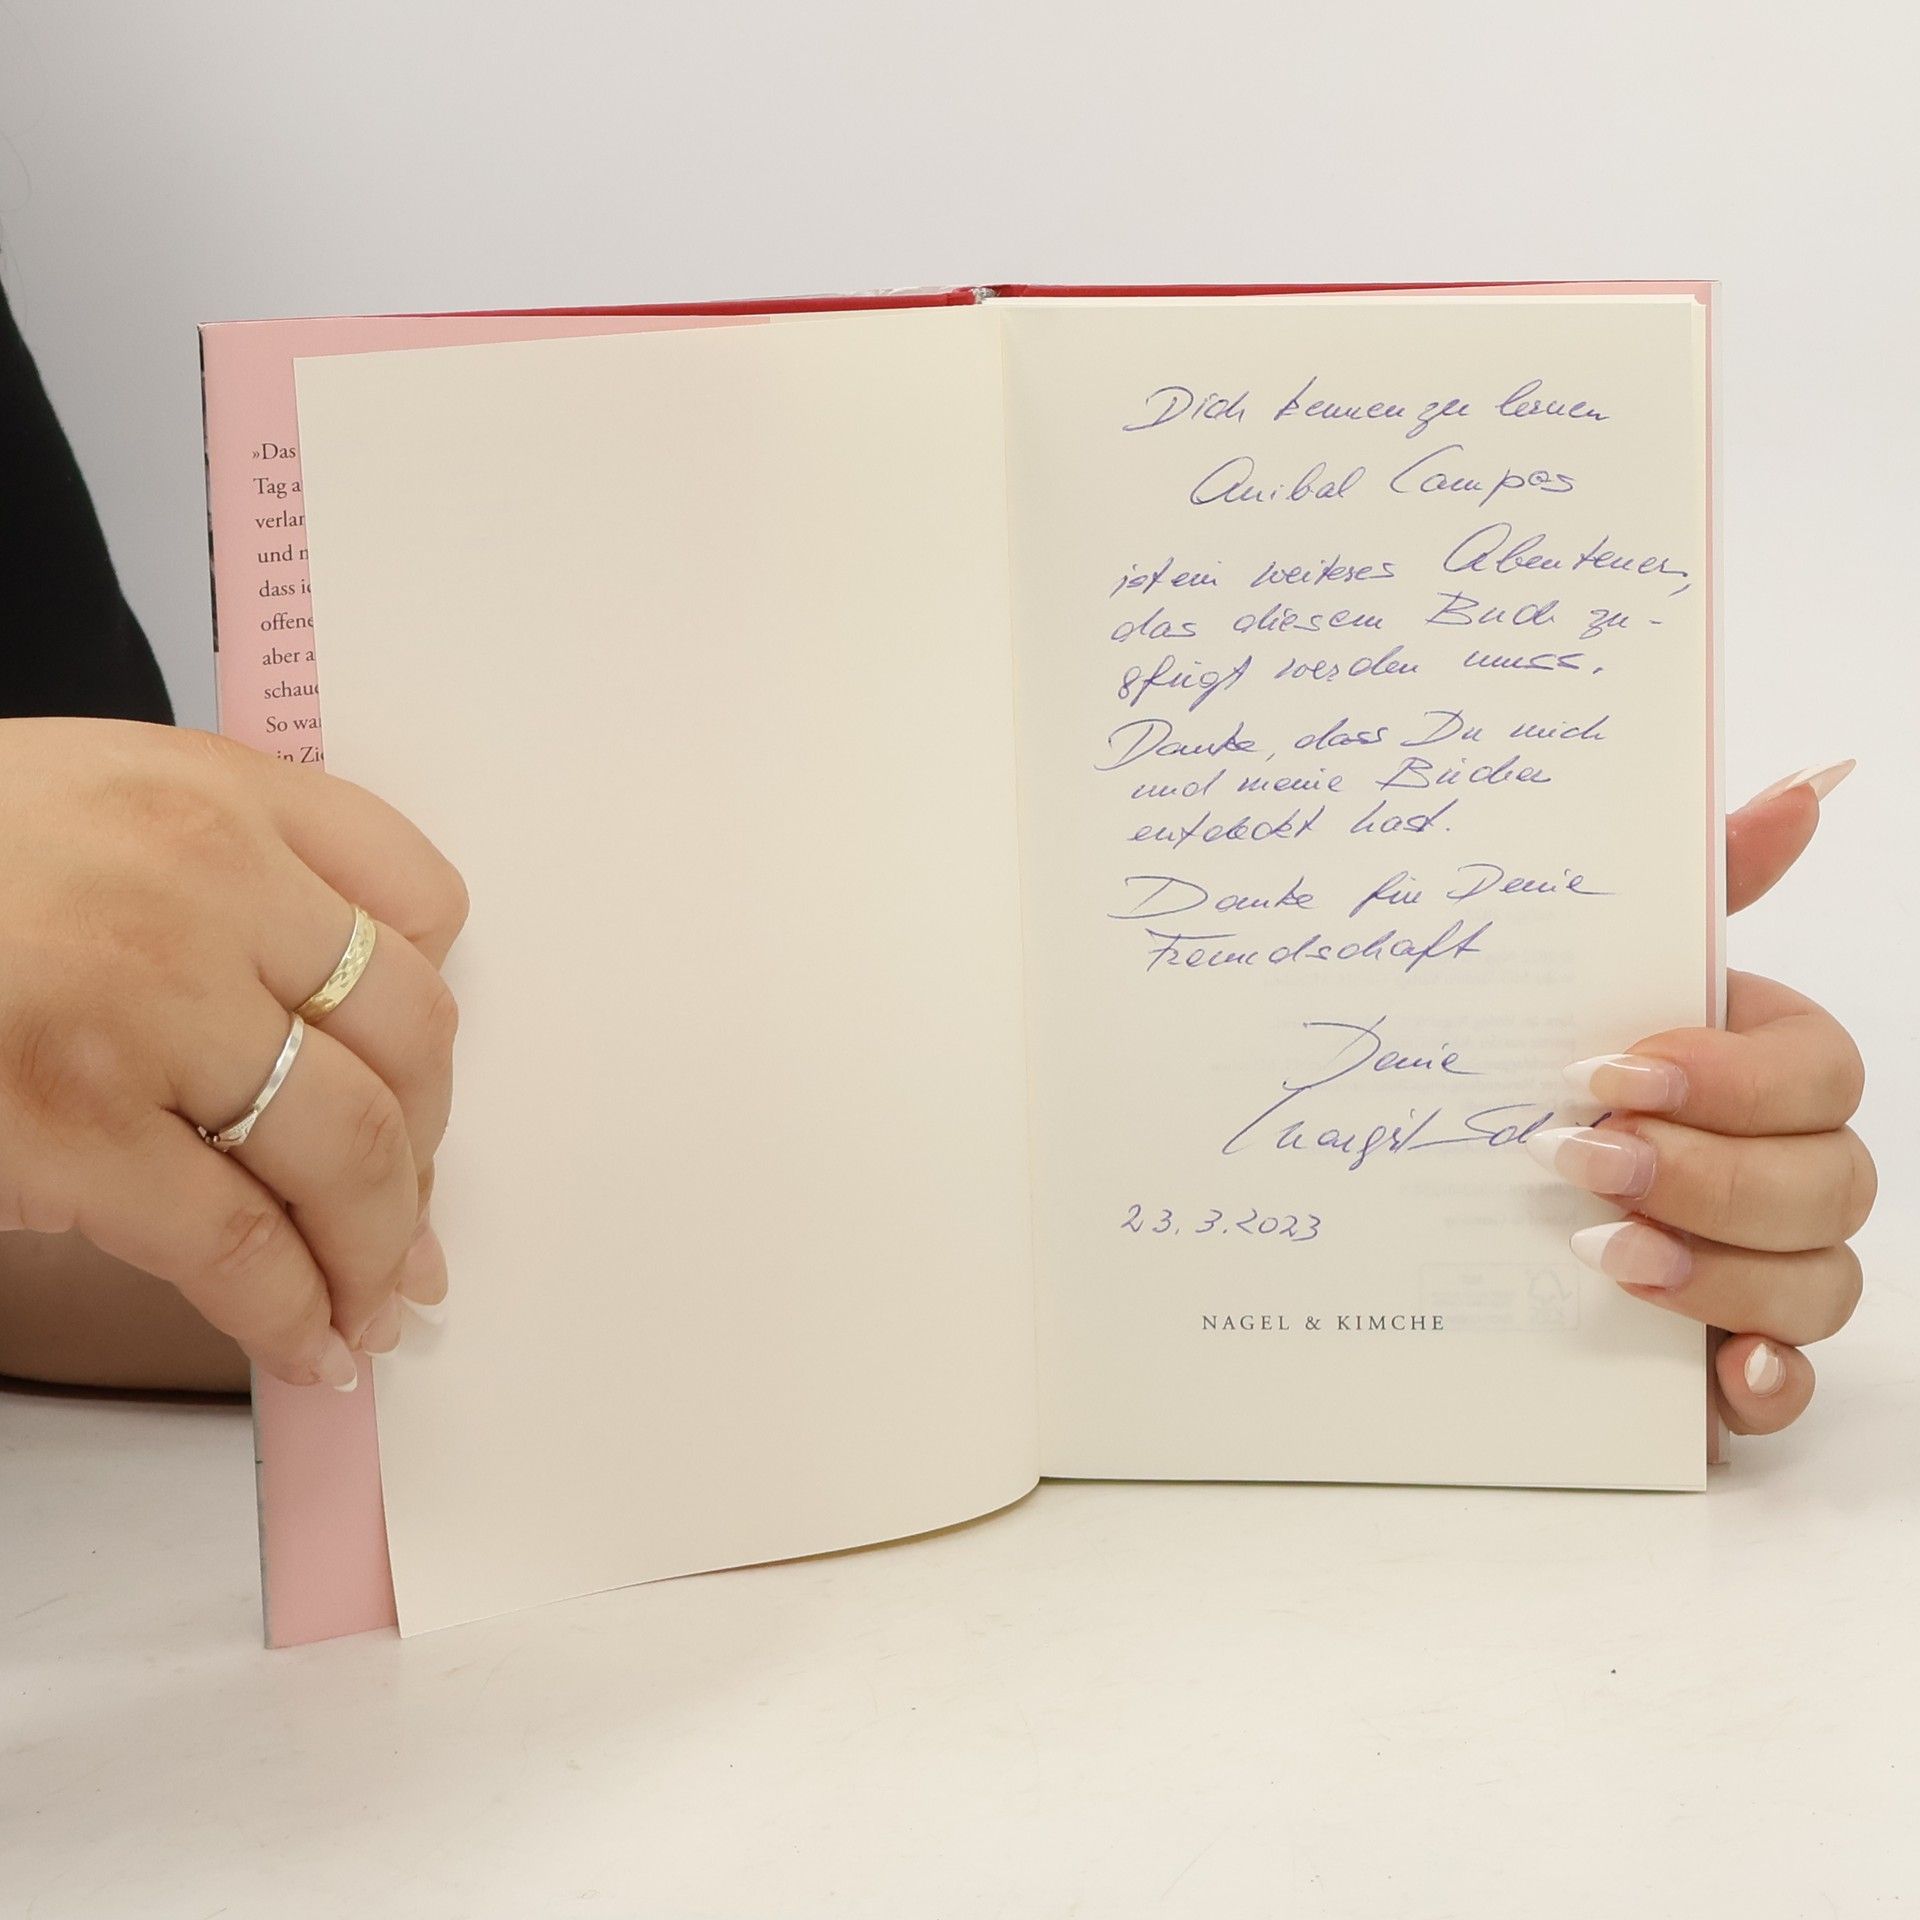 »Das
Tag a
verlan
und n
dass ic
offene
aber a
schaue
So wa
in Zie
Dich kennen zu lernen
Anibal Campos
ist ein weiteres Abenteuer,
das diesem Buch zu-
gfügt werden muss.
Danke, dass Du mich
und meine Bücher
entdeckt hast.
Danke für Deine
Freundschaft
Deine
Margrit Sch
23.3.2023
NAGEL & KIMCHE